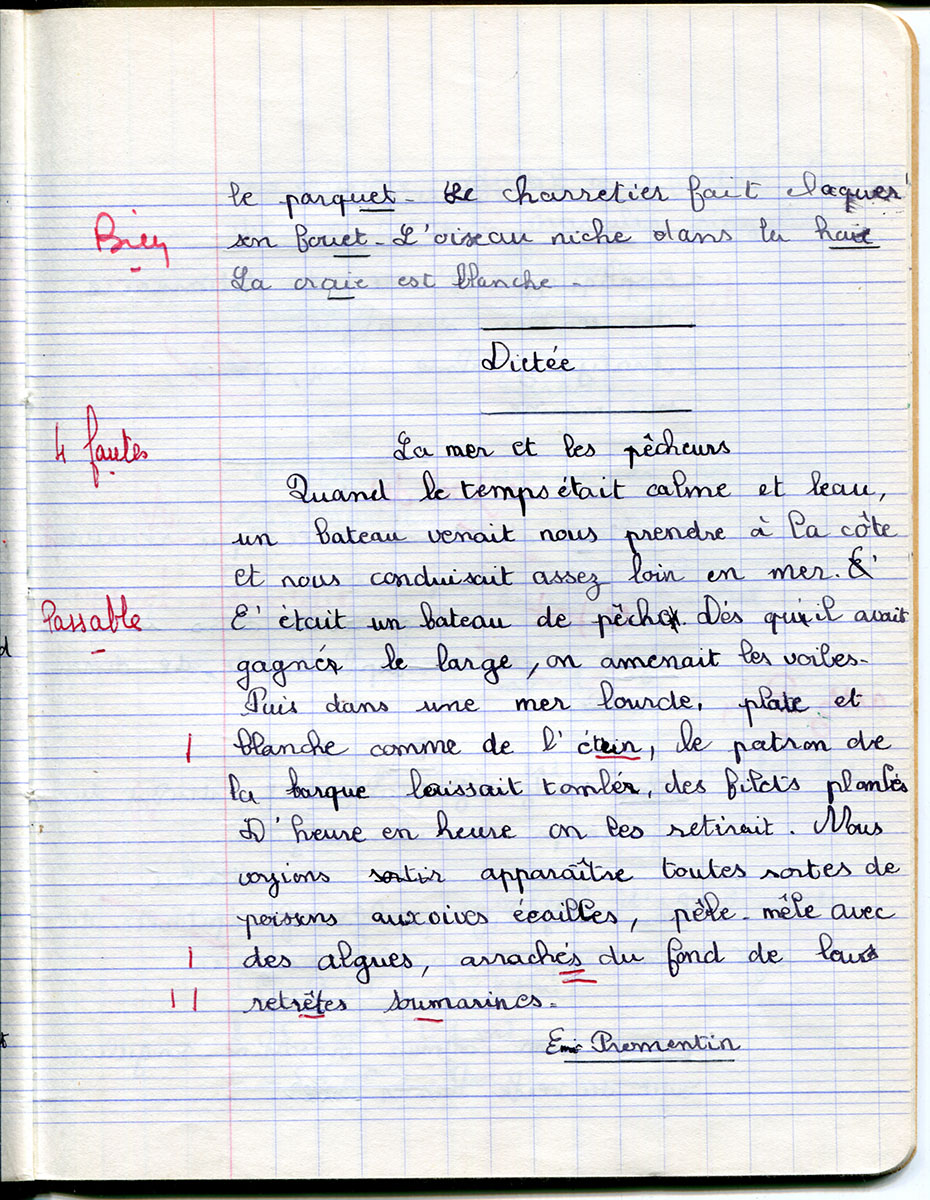 le parquet. Le charretier fait claquer
Bien
son fouet. L'oiseau niche dans la haie
La craie est blanche.
Dictée
4 fautes
La mer et les pêcheurs
Quand le temps était calme et beau,
un bateau venait nous prendre à la côte
et nous conduisait assez loin en mer.
Passable
C'était un bateau de pêche. Dès qu'il avait
gagné le large, on amenait les voiles.
Puis dans une mer lourde, plate et
| blanche comme de l'étuin, le patron de
la barque laissait tomber, des filets plombés
D'heure en heure on les retirait. Nous
voyions sortir apparaître toutes sortes de
poissons aux vives écailles, pêle-mêle avec
| des algues, arrachés du fond de leurs
|| retrêtes soumarines.
Fromentin